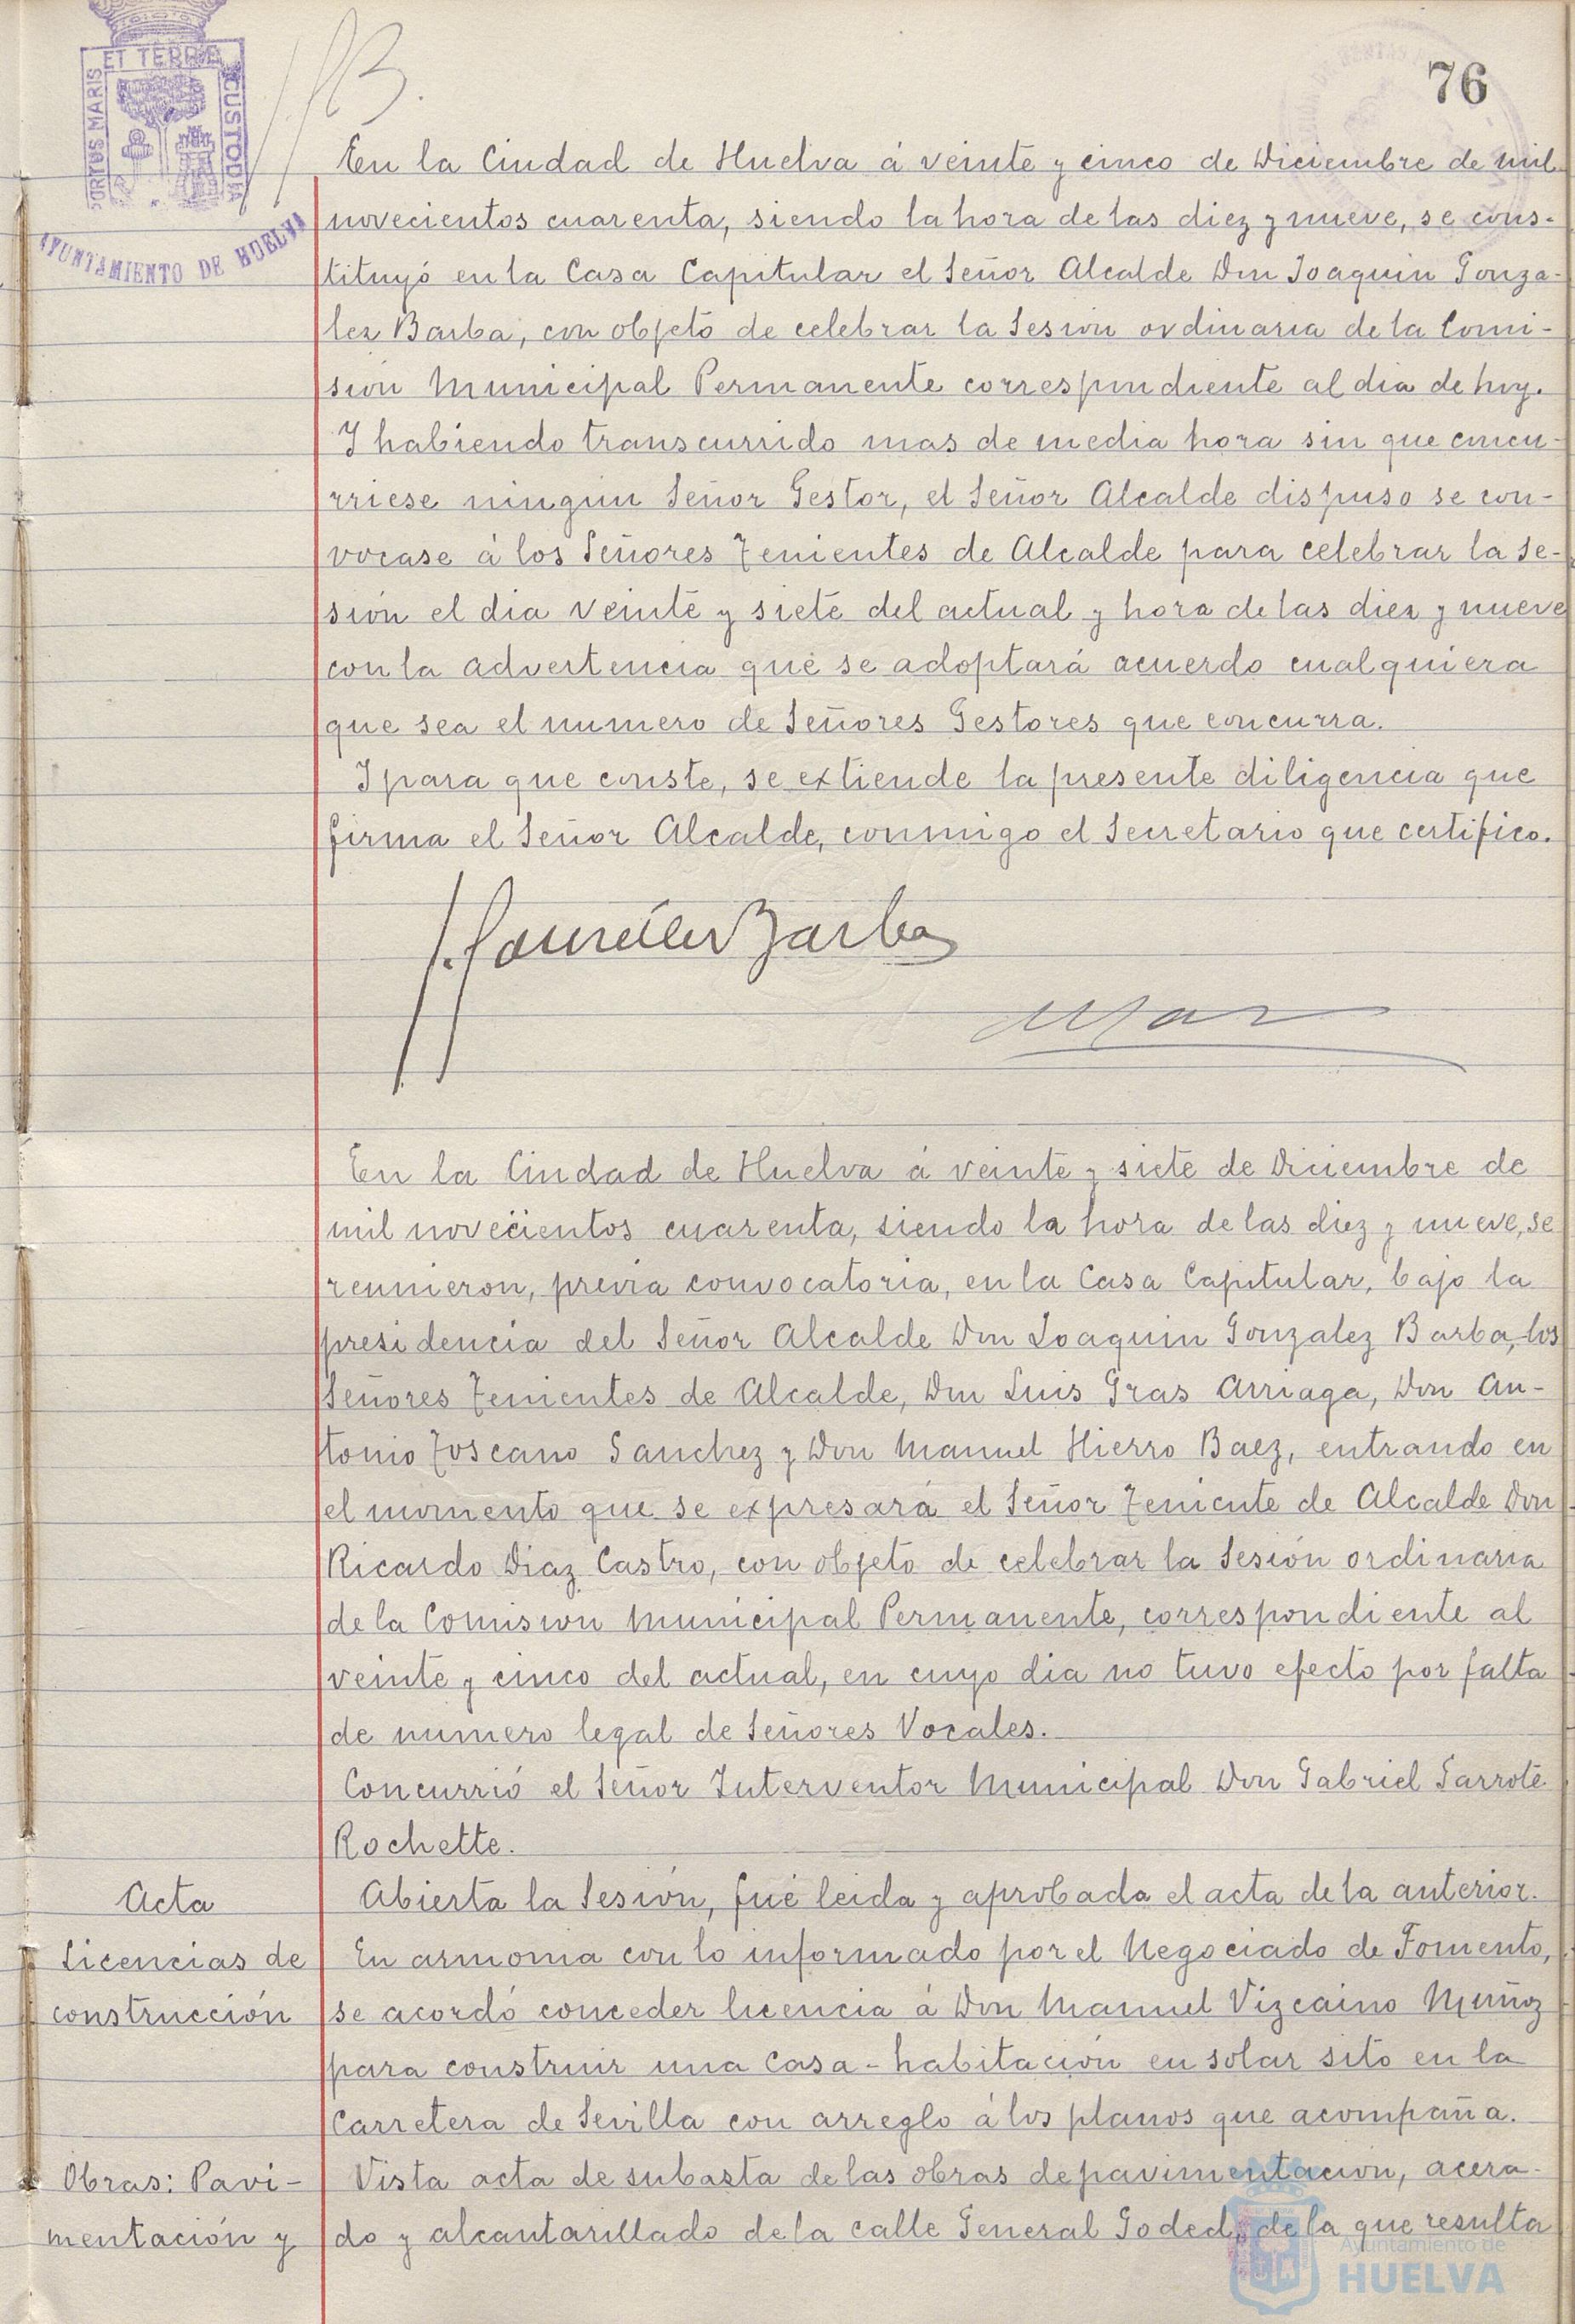 76
PORTUS MARIS ET TERRE CUSTODIA
AYUNTAMIENTO DE HUELVA
En la Ciudad de Huelva á veinte y cinco de Diciembre de mil
novecientos cuarenta, siendo la hora de las diez y nueve, se cons-
tituyó en la Casa Capitular el Señor Alcalde Don Joaquin Gonza-
lez Barba, con objeto de celebrar la Sesión ordinaria de la Comi-
sion Municipal Permanente correspondiente al dia de hoy.
Y habiendo transcurrido mas de media hora sin que concu-
rriese ningun Señor Gestor, el Señor Alcalde dispuso se con-
vocase á los Señores Tenientes de Alcalde para celebrar la se-
sión el dia veinte y siete del actual y hora de las diez y nueve
con la advertencia que se adoptará acuerdo cualquiera
que sea el numero de Señores Gestores que concurra.
Y para que conste, se extiende la presente diligencia que
firma el Señor Alcalde, conmigo el Secretario que certifico.
J. González Barba
En la Ciudad de Huelva á veinte y siete de Diciembre de
mil novecientos cuarenta, siendo la hora de las diez y nueve, se
reunieron, previa convocatoria, en la Casa Capitular, bajo la
presidencia del Señor Alcalde Don Joaquin Gonzalez Barba, los
Señores Tenientes de Alcalde, Don Luis Gras Arriaga, Don An-
tonio Toscano Sanchez y Don Manuel Hierro Baez, entrando en
el momento que se expresará el Señor Teniente de Alcalde Don
Ricardo Diaz Castro, con objeto de celebrar la Sesión ordinaria
de la Comision Municipal Permanente, correspondiente al
veinte y cinco del actual, en cuyo dia no tuvo efecto por falta
de numero legal de Señores Vocales.
Concurrió el Señor Interventor Municipal Don Gabriel Garrote
Rochette.
Acta
Abierta la Sesión, fué leida y aprobada el acta de la anterior.
Licencias de
construcción
En armonia con lo informado por el Negociado de Fomento,
se acordó conceder licencia á Don Manuel Vizcaino Muñoz
para construir una casa-habitación en solar sito en la
Carretera de Sevilla con arreglo á los planos que acompaña.
Obras: Pavi-
mentación y
Vista acta de subasta de las obras de pavimentacion, acera-
do y alcantarillado de la calle General Goded, de la que resulta
Ayuntamiento de
HUELVA